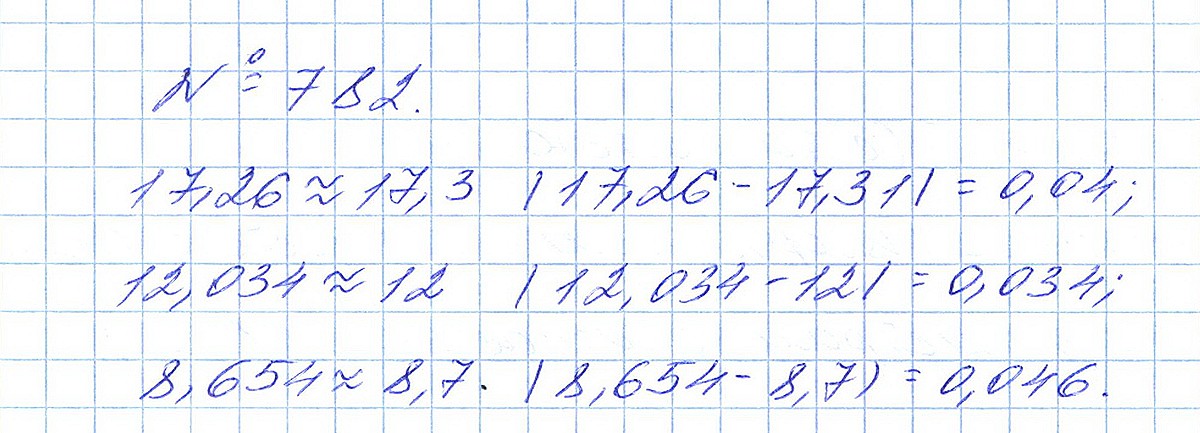 № 782.
17,26 ≈ 17,3 |17,26 - 17,31| = 0,04;
12,034 ≈ 12 |12,034 - 12| = 0,034;
8,654 ≈ 8,7. |8,654 - 8,7) = 0,046.